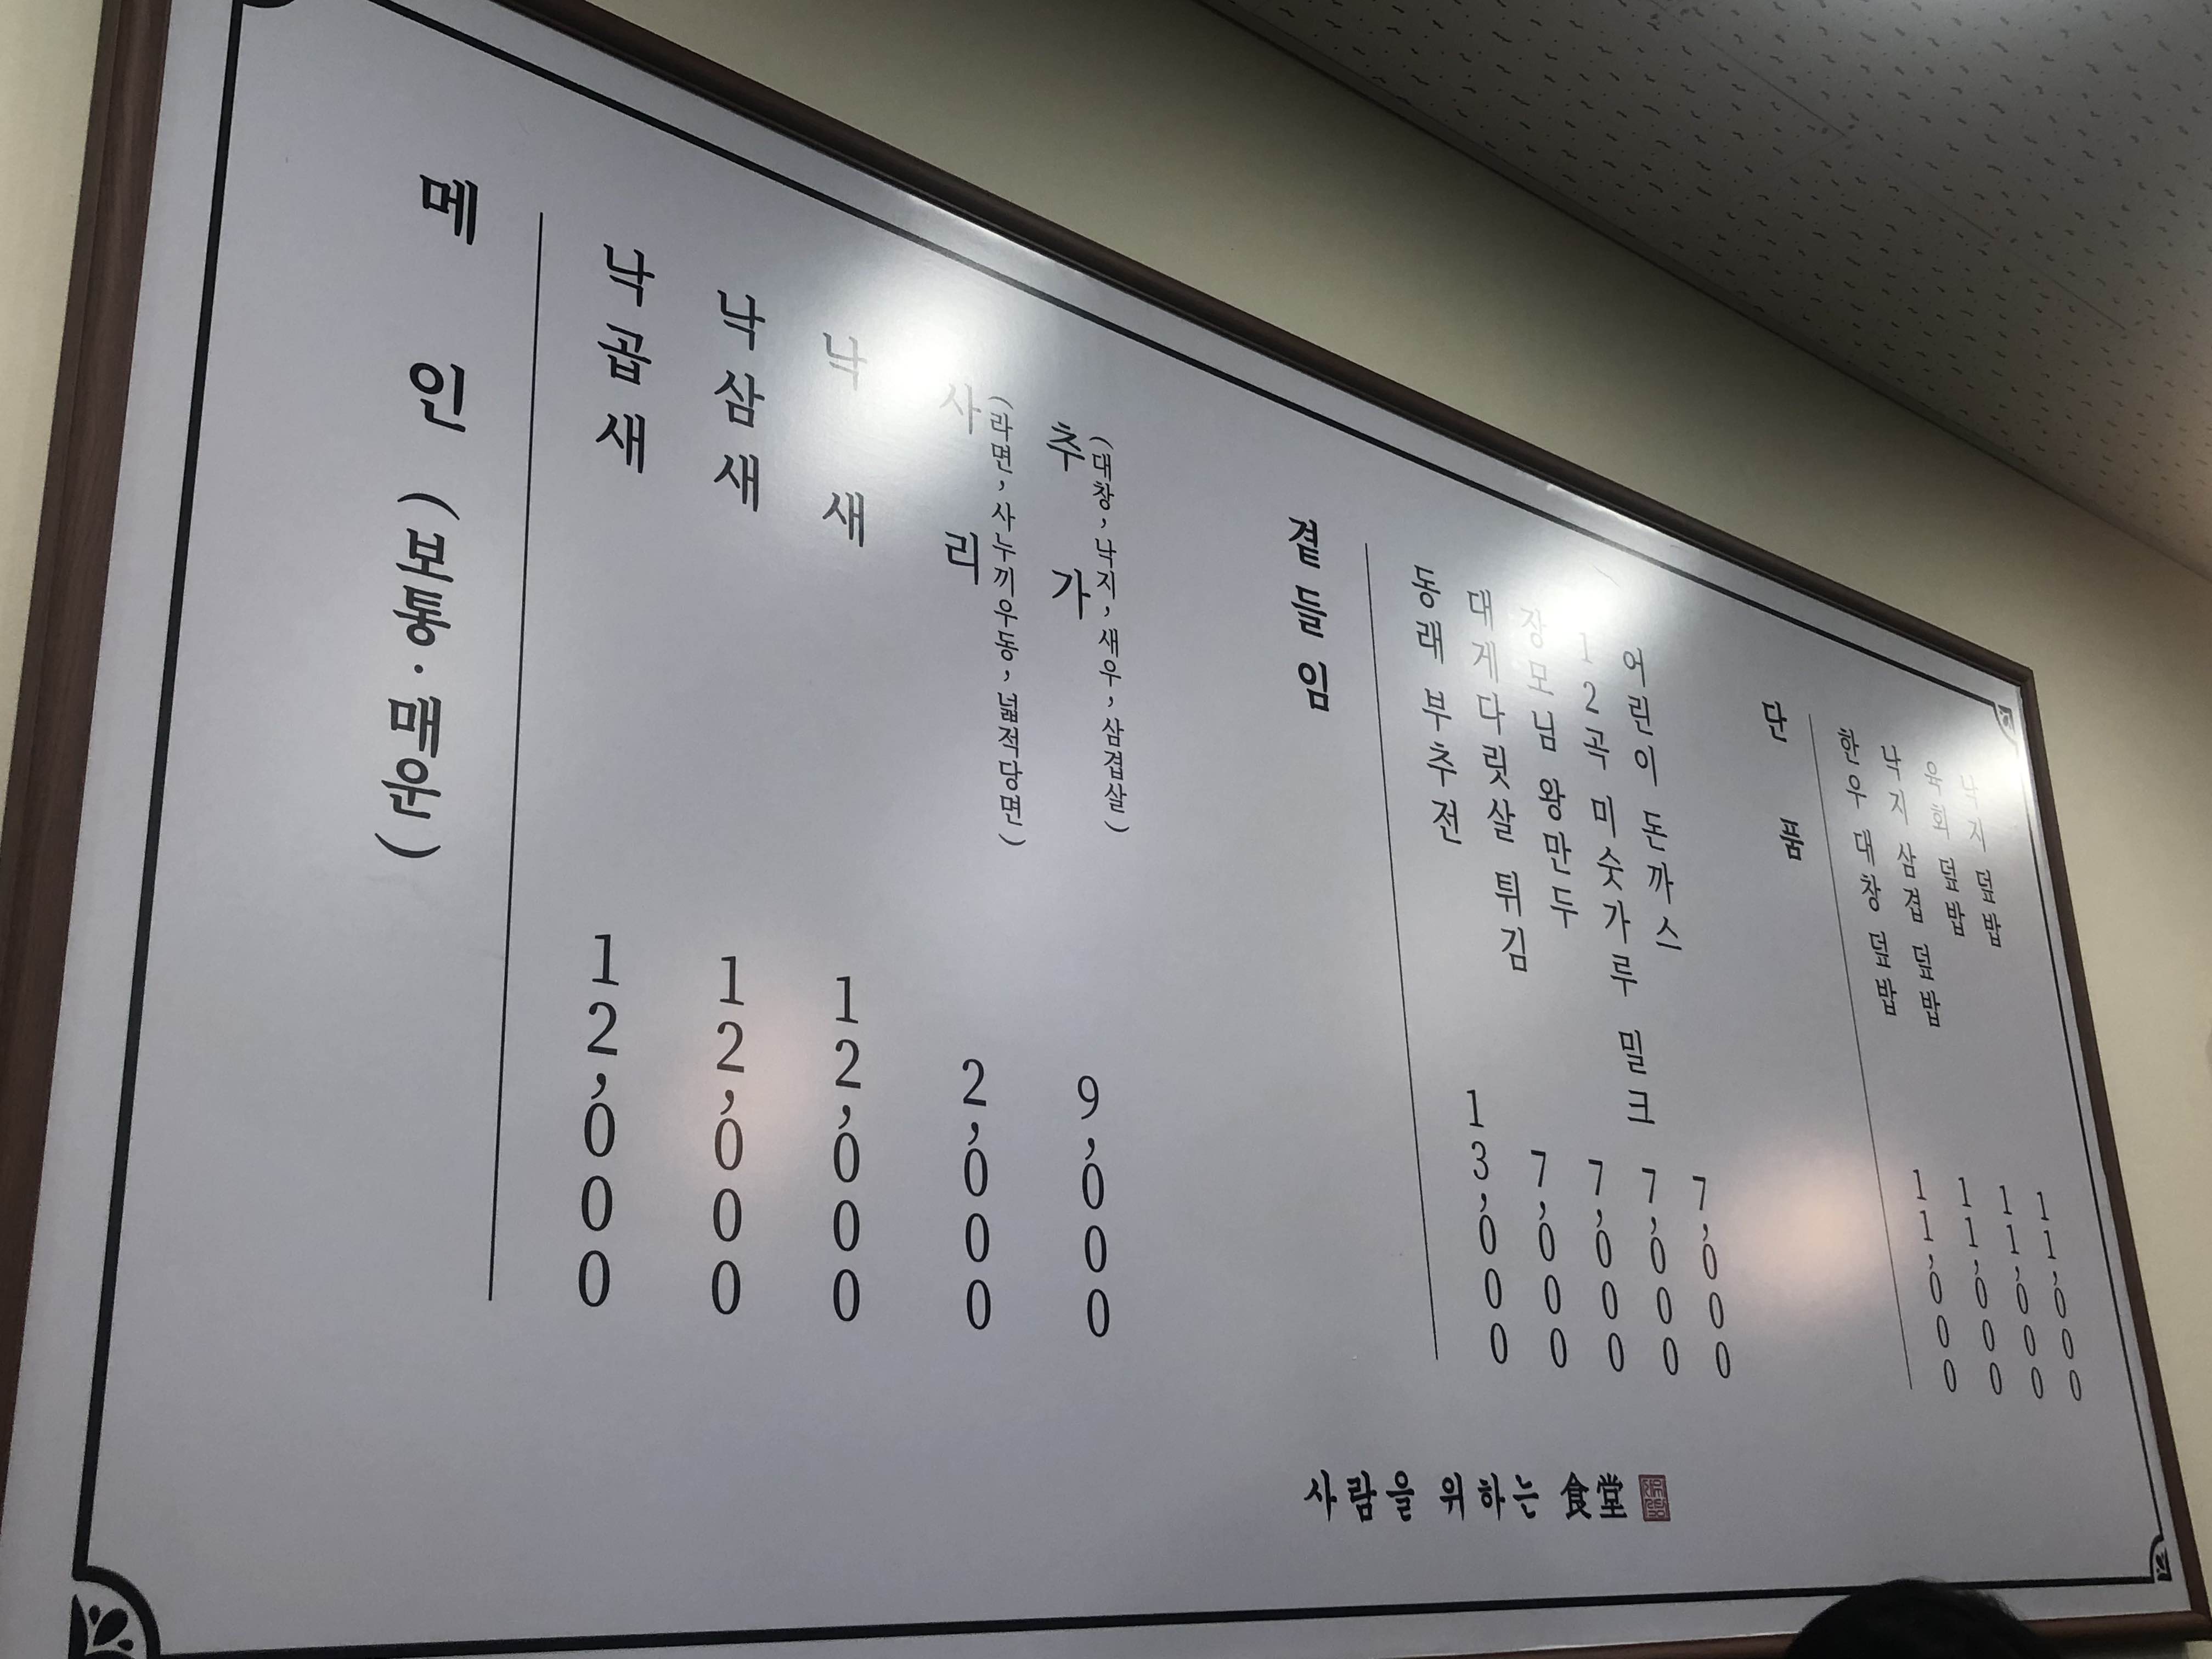 메인 (보통·매운)
낙곱새 12,000
낙삼새 12,000
낙새 12,000
사리 2,000
(라면, 사누끼우동, 넓적당면)
추가 9,000
(대창, 낙지, 새우, 삼겹살)
곁들임
동래 부추전 13,000
대게다릿살 튀김 7,000
장모님 왕만두 7,000
12곡 미숫가루 밀크 7,000
어린이 돈까스 7,000
단품
한우 대창 덮밥 11,000
낙지 삼겹 덮밥 11,000
육회 덮밥 11,000
낙지 덮밥 11,000
사람을 위하는 食堂